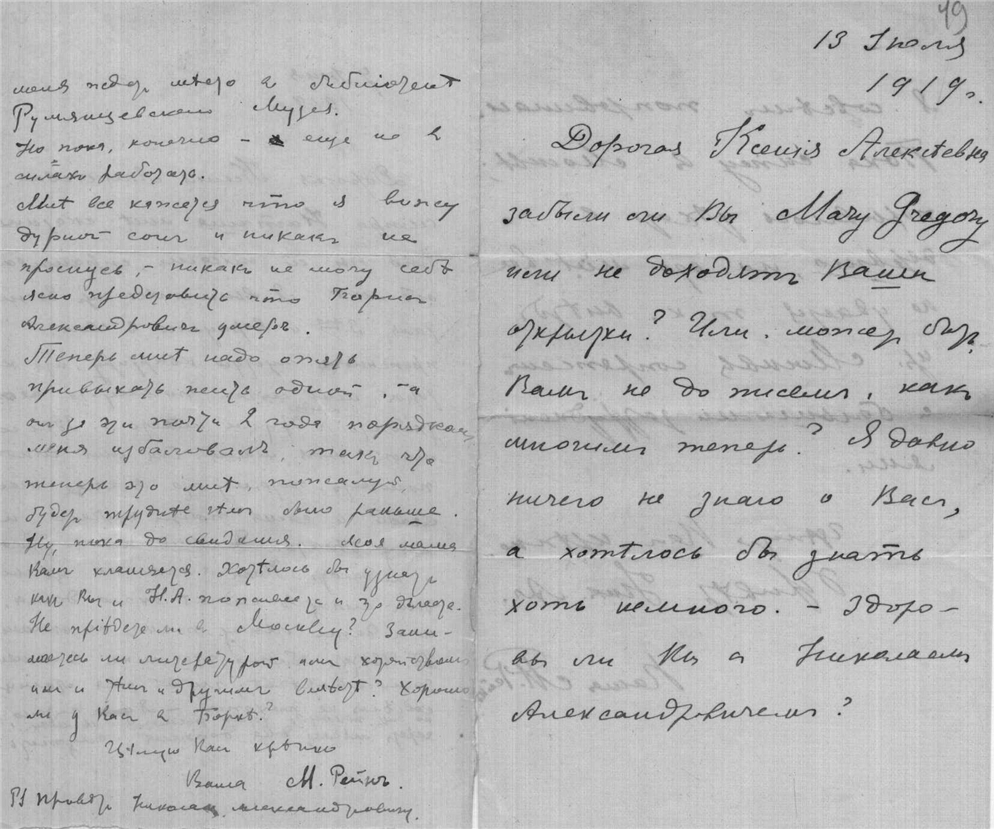 49
13 Июля
1919 г.
Дорогая Ксенія Алексѣевна
забыли ли Вы Mary Gregory
или не доходятъ Ваши
открытки? Или. может быть,
Вамъ не до писемъ, какъ
многимъ теперь? Я давно
ничего не знаю о Васъ,
а хотѣлось бы знать
хоть немного. – Здоро-
вы ли Вы с Николаемъ
Александровичемъ?
меня ждет мѣсто в библіотекѣ
Румянцевского Музея.
Но пока, конечно – еще не в
силах работать.
Мнѣ все кажется что я вижу
дурной сонъ и никакъ не
проснусь, – никакъ не могу себѣ
ясно представить что Борис
Александрович умеръ.
Теперь мнѣ надо опять
привыкать жить одной, – а
он за эти почти 2 года порядком
меня избаловалъ, так что
теперь это мнѣ, пожалуй,
будет труднѣе чѣм было раньше.
Ну, пока до свидания. Моя мама
Вамъ кланяется. Хотѣлось бы узнать
как Вы и Н.А. поживаете и что дѣлаете.
Не пріѣдете ли в Москву? Зани-
маетесь ли литературой или хозяйством
или и тѣм и другимъ вмѣстѣ? Хорошо
ли у Вас в Боркѣ?
Цѣлую Вас крѣпко
Ваша М. Рейнъ.
PS Привет Николаю Александровичу.